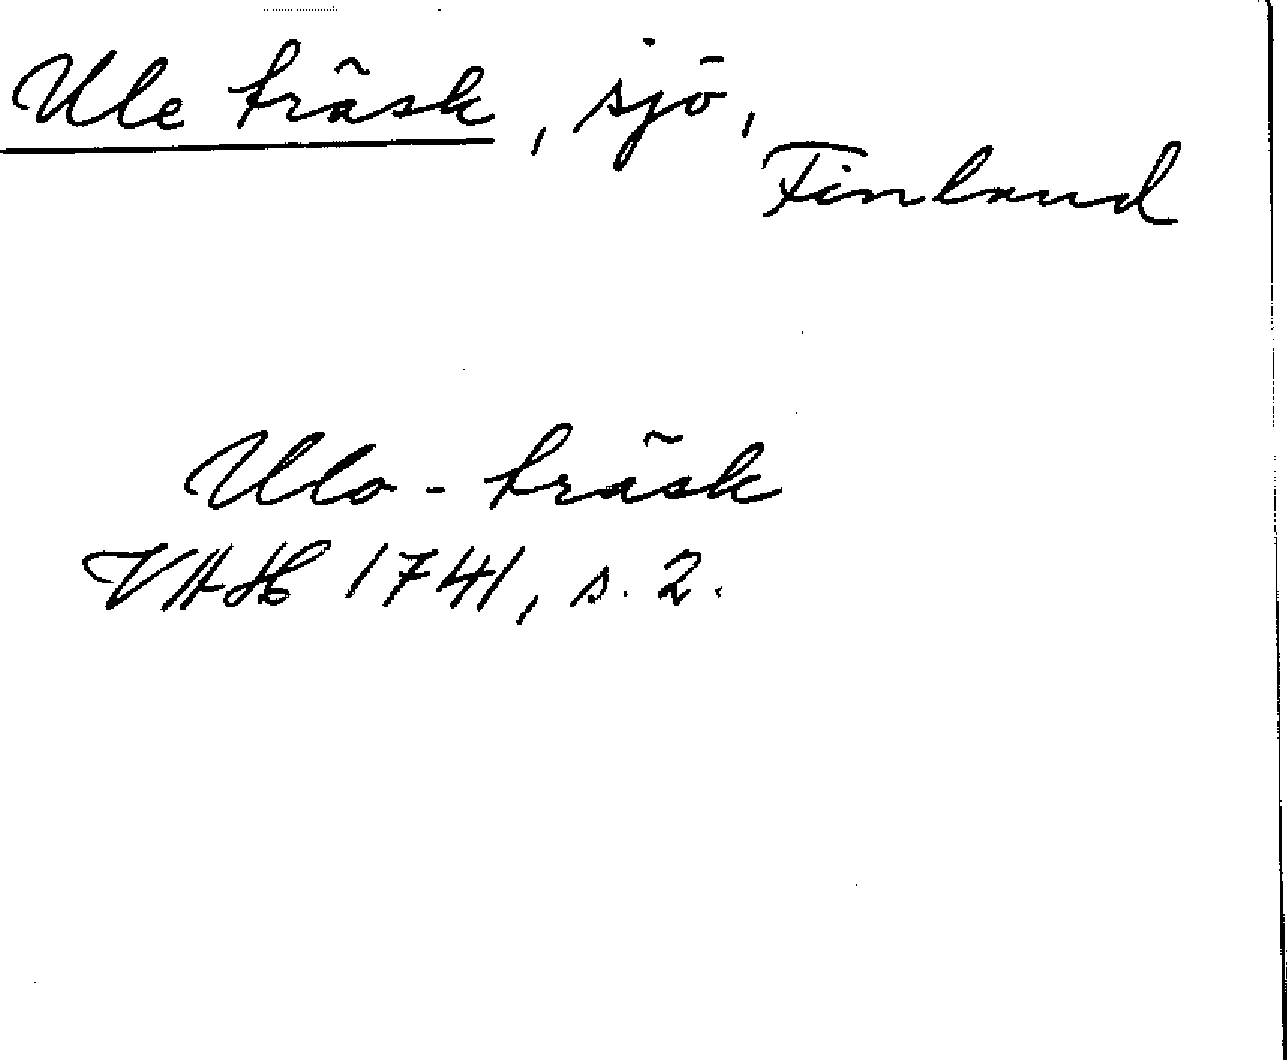 Ule träsk, sjö,
Finland
Ulo-träsk
VAH 1741, s. 2.